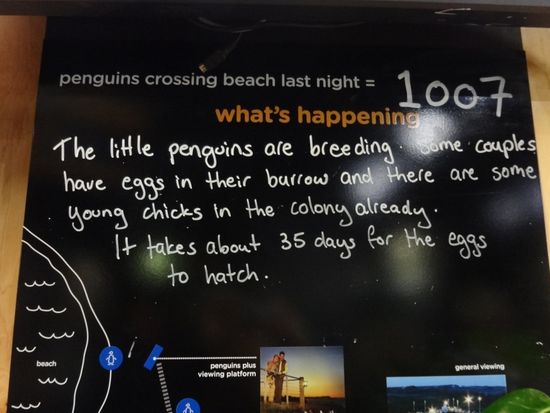 penguins crossing beach last night = 1007
what's happening
The little penguins are breeding. Some couples
have eggs in their burrow and there are some
young chicks in the colony already.
It takes about 35 days for the eggs
to hatch.
beach
penguins plus
viewing platform
general viewing